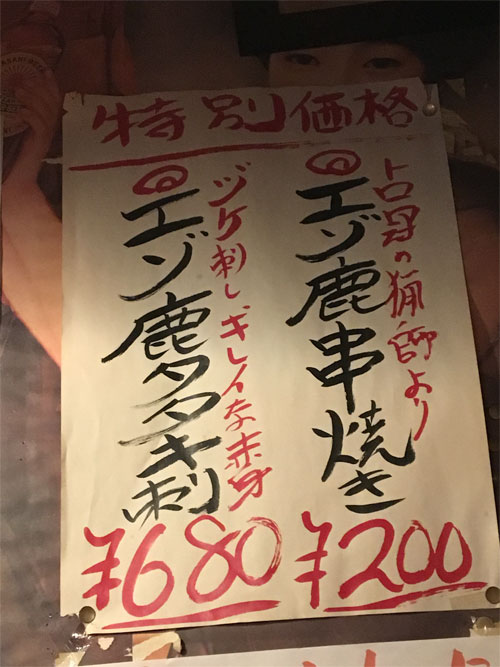 特別価格
トロ冠の猟師より
エゾ鹿串焼き
¥200
ヅケ刺し、キレイな赤身
エゾ鹿タタキ刺
¥680